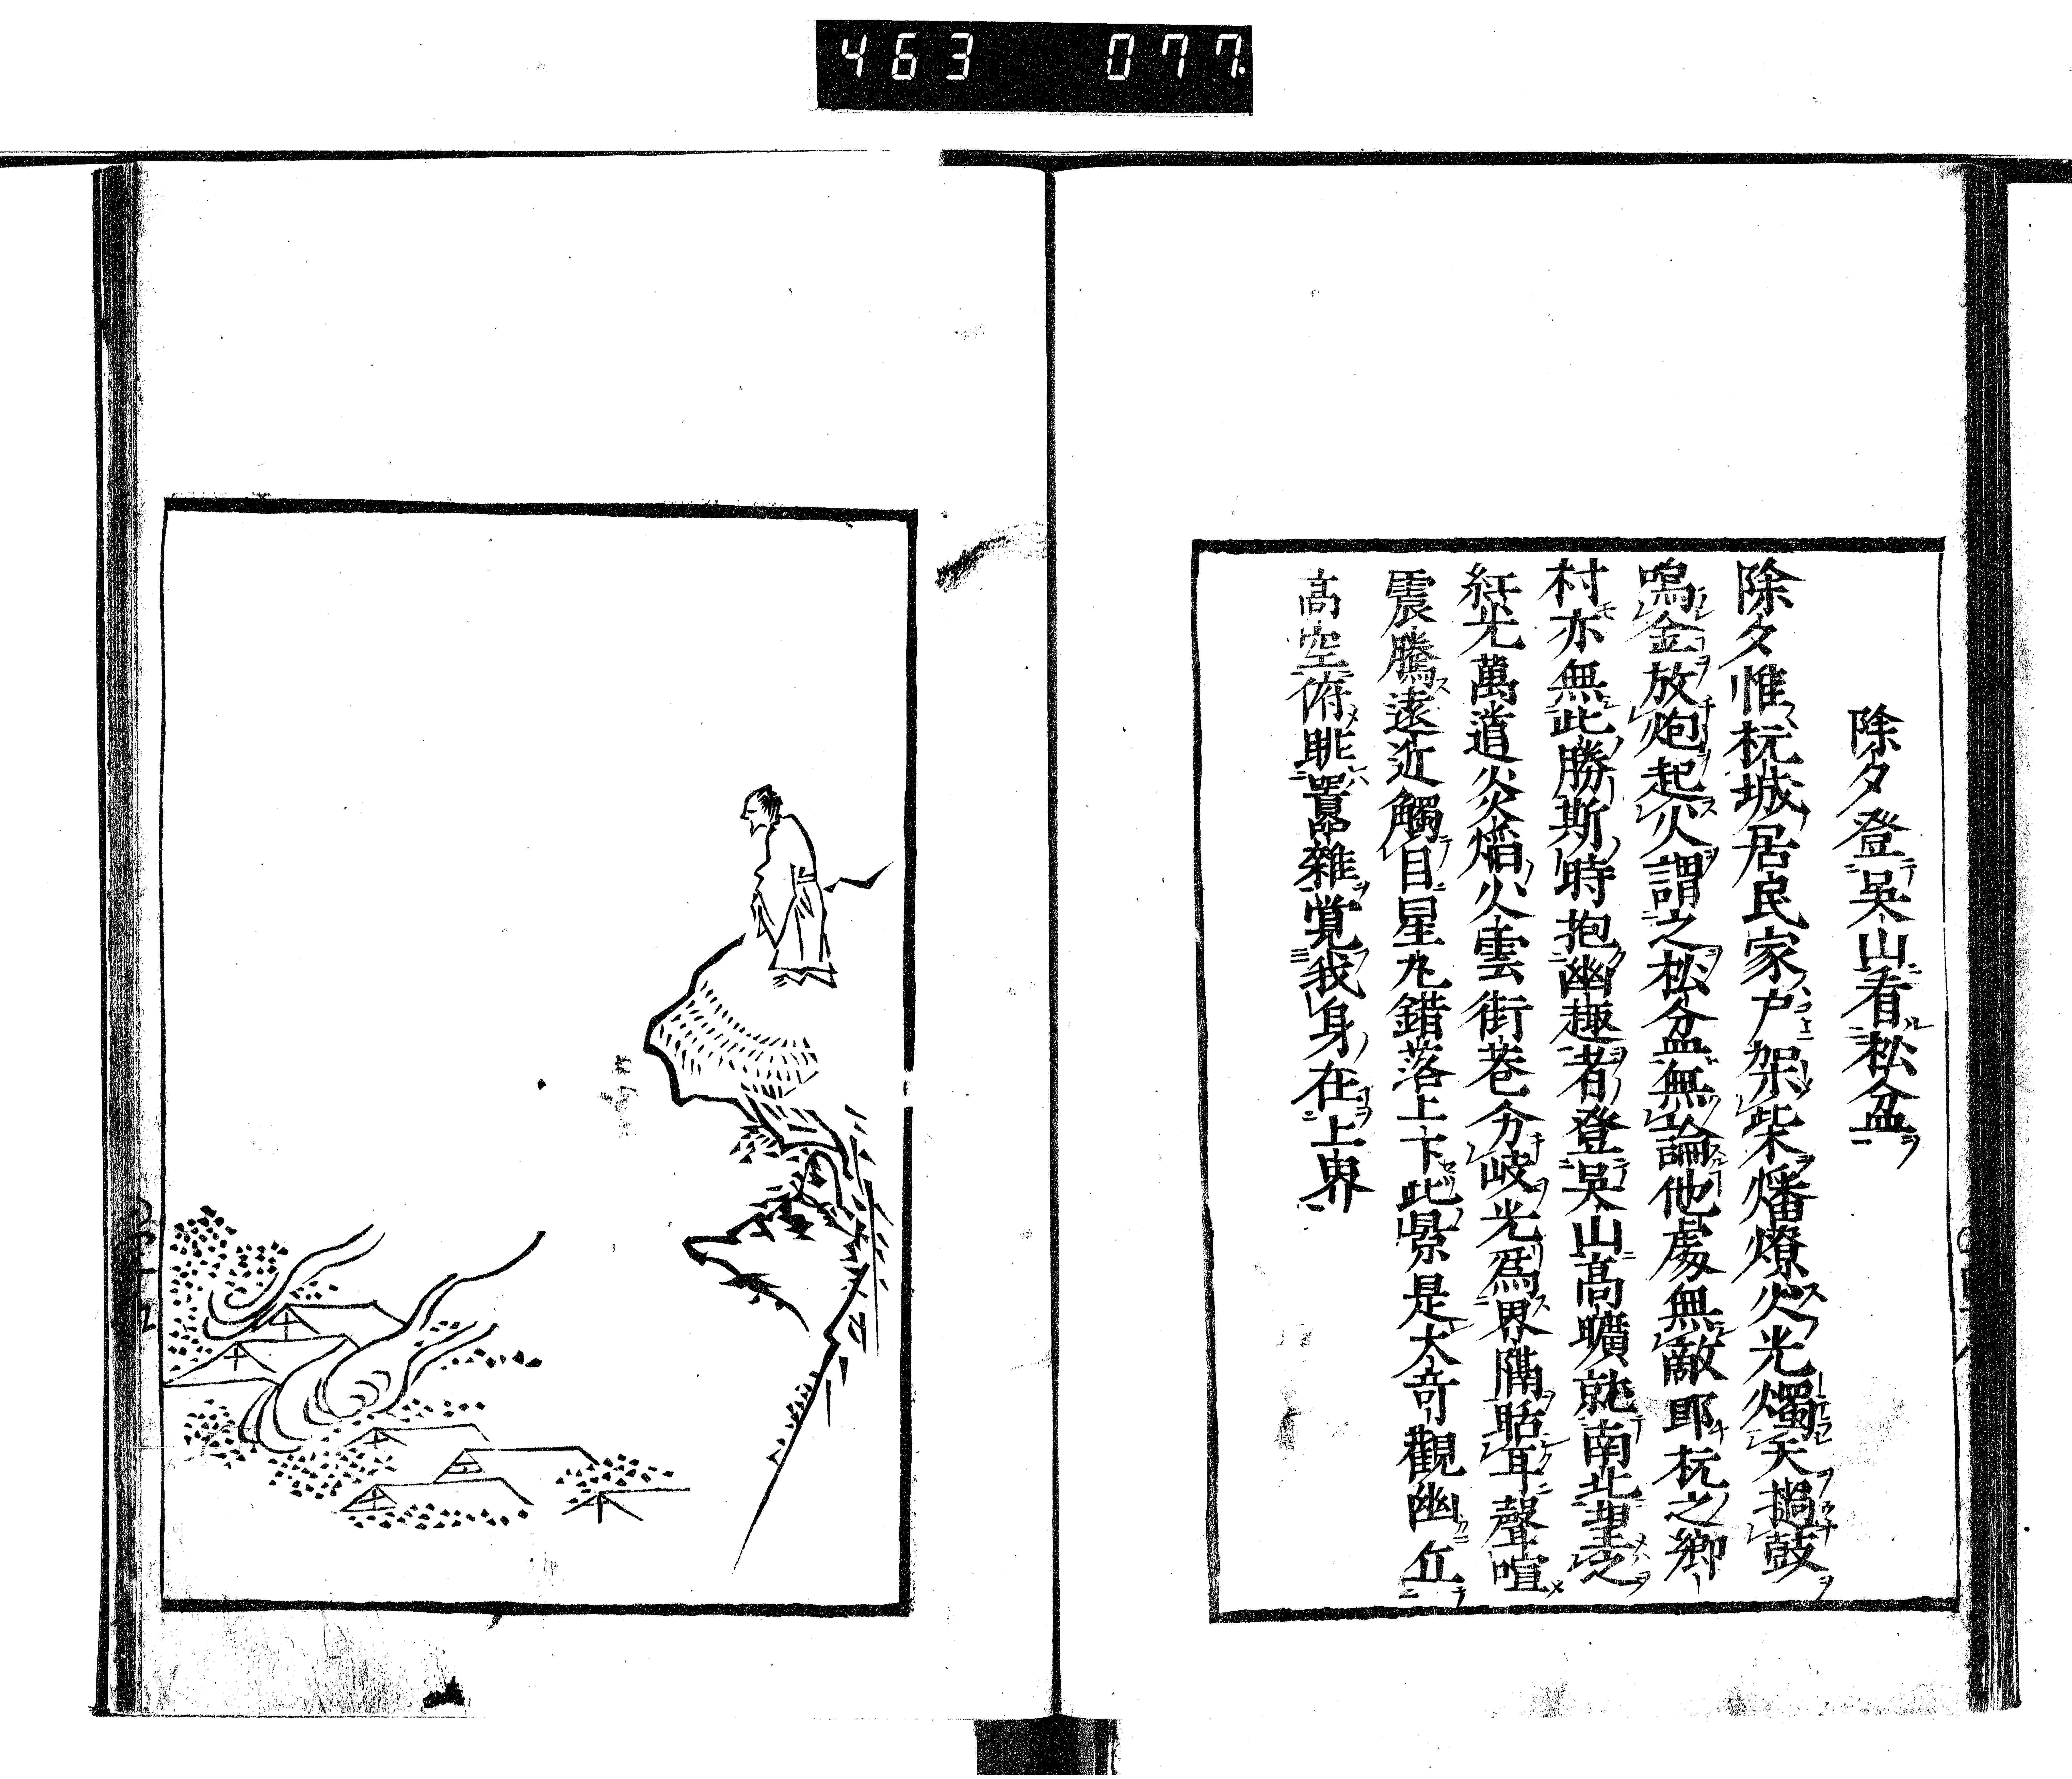 463 077
除夕登吳山看松盆
除夕惟杭城居民家戶架柴燔燎火光燭天撾鼓
鳴金放炮起火謂之松盆無論他處無敵即杭之鄉
村亦無此勝斯時抱幽趣者登吳山高曠就南北望之
紅光萬道炎焰火雲街巷分岐光爲界隔聒耳聲喧
震騰遠近觸目星丸錯落上下此景是大奇觀幽立
高空俯眺囂雜覺我身在上界